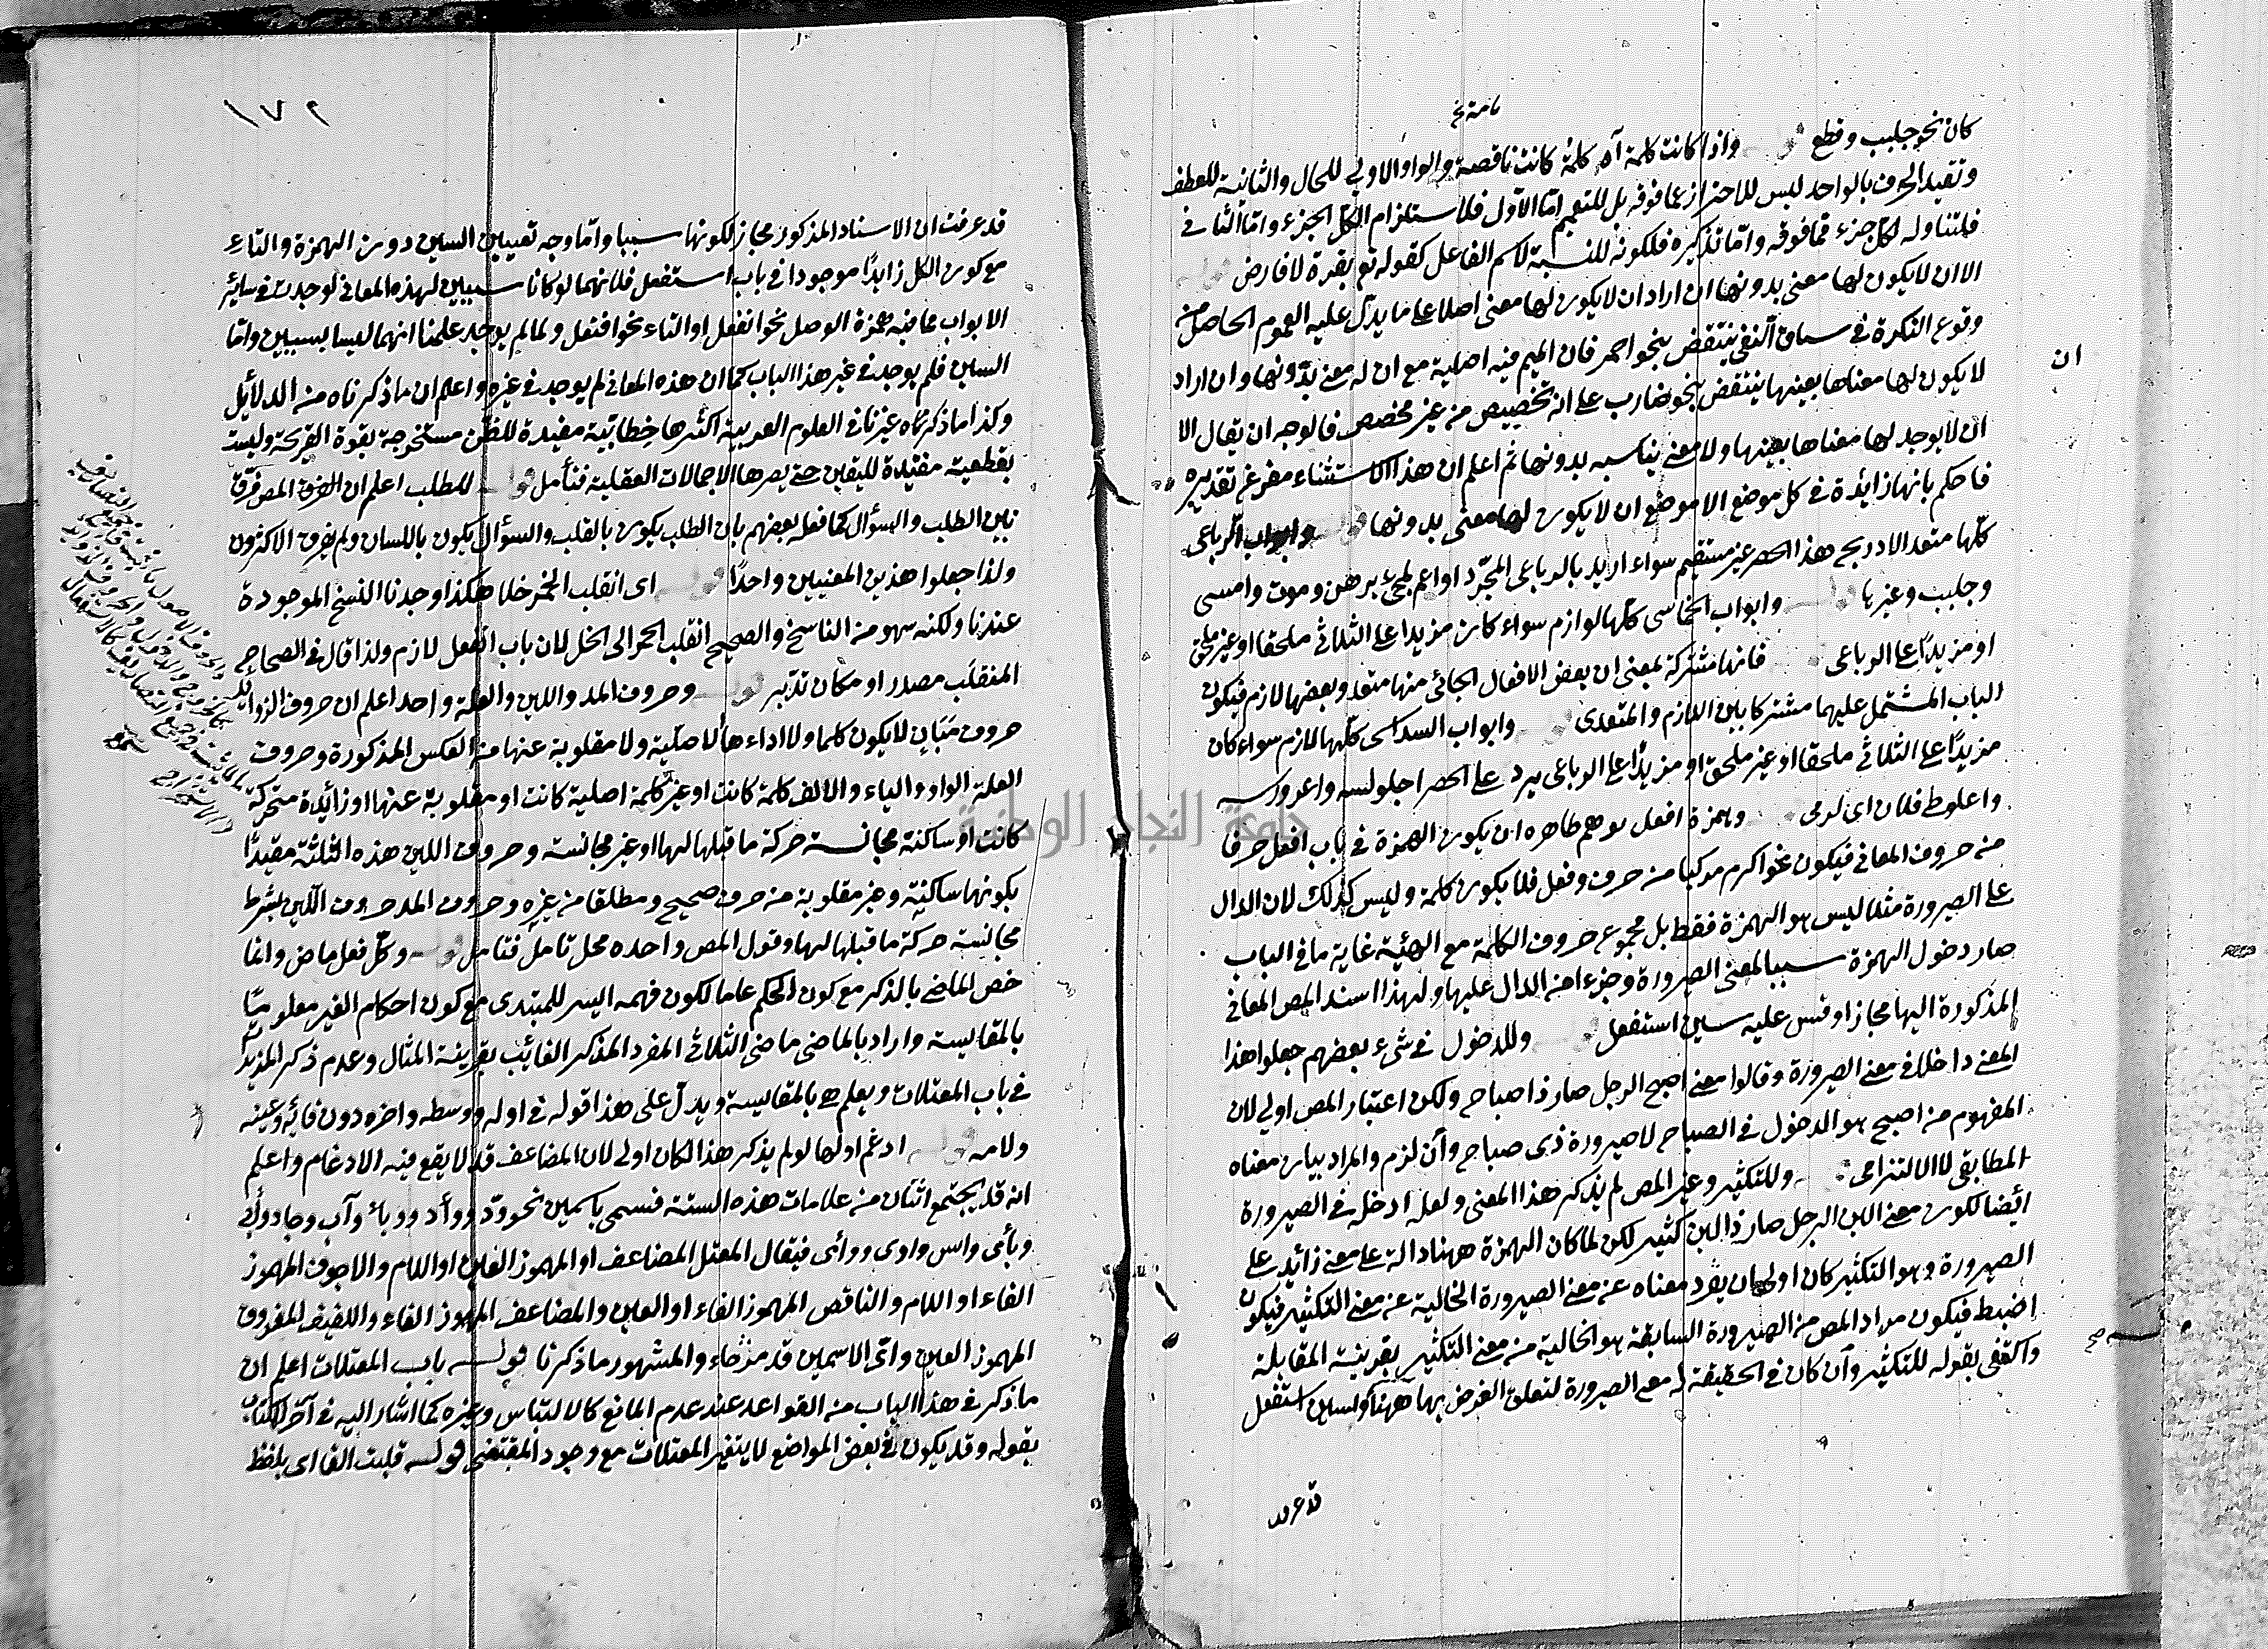 تامة نخ
كان نحو جلبب وقطع واذا كانت كلمة آه كلمة كانت ناقصة والواو الاولى للحال والثانية للعطف
وتقييد الحرف بالواحد ليس للاحتراز عما فوقه بل للتعميم امّا الاوّل فلاستلزام الكلّ الجزء وامّا الثاني
فلتناوله لكل جزء مما فوقه وامّا تذكيره فلكونه للنسبة لا اسم الفاعل كقوله تع بقرة لا فارض
الا ان لا يكون لها معنى بدونها ان اراد ان لا يكون لها معنى اصلا على ما يدلّ عليه العموم الحاصل من
وقوع النكرة في سياق النفي ينتقض بنحو احمر فان الميم فيه اصلية مع ان له معنى بدونها وان اراد
ان
لا يكون لها معناها بعينها ينتقض بنحو ضارب على انه تخصيص من غير مخصص فالوجه ان يقال الا
ان لا يوجد لها معناها بعينها ولا معنى يناسبه بدونها ثم اعلم ان هذا الاستثناء مفرغ تقديره
فاحكم بانها زائدة في كل موضع الا موضع ان لا يكون لها معنى بدونها وابواب الرباعى
كلّها متعد الا دربح هذا الحصر غير مستقيم سواء اريد بالرباعى المجرّد او اعم لمجئ برهن وموت وامسى
وجلبب وغيرها وابواب الخماسى كلّها لوازم سواء كان مزيدا على الثلاثى ملحقا او غير ملحق
او مزيدًا على الرباعى فانها مشتركة بمعنى ان بعض الافعال الجائى منها متعد وبعضها لازم فيكون
الباب المشتمل عليهما مشتركا بين اللازم والمتعدى وابواب السداسى كلّها لازم سواء كان
مزيدًا على الثلاثى ملحقا او غير ملحق او مزيدًا على الرباعى يرد على الحصر
واعلوط فلان اى لرمى وهمزة افعل يوهم ظاهره ان يكون الهمزة في باب افعل حرفا
من حروف المعانى فيكون نحو اكرم مركبا من حرف وفعل فلا يكون كلمة وليس كذلك لان الدال
على الصيرورة مثلا ليس هو الهمزة فقط بل مجموع حروف الكلمة مع الهيئة غاية ما في الباب
صار دخول الهمزة سببا لمعنى الصيرورة وجزءا من الدال عليها ولهذا اسند المص المعانى
المذكورة اليها مجازا وقس عليه سين استفعل وللدخول في شىء بعضهم جعلوا هذا
المعنى داخلا في معنى الصيرورة وقالوا معنى اصبح الرجل صار ذا صباح ولكن اعتبار المص اولى لان
المفهوم من اصبح هو الدخول في الصباح لا صيرورة ذى صباح وان لزم والمراد بيان معناه
المطابقى لا الالتزامى وللتكثير وغير المص لم يذكر هذا المعنى ولعله ادخله في الصيرورة
ايضا لكون معنى البن الرجل صار ذا لبن كثير لكن لما كان الهمزة ههنا دالة على معنى زائد على
الصيرورة وهو التكثير كان اولى ان يفرد معناه عن معنى الصيرورة الخالية عن معنى التكثير فيكون
اضبط فيكون مراد المص من الصيرورة السابقة هو الخالية من معنى التكثير بقرينة المقابلة
واكتفى بقوله للتكثير وان كان في الحقيقة له معنى الصيرورة لتعلق الغرض بها ههنا ولسين استفعل
قد عرفت
١٧٢
قد عرفت ان الاسناد المذكور مجاز لكونها سببا وامّا وجه تعيين السين دون الهمزة والتاء
مع كون الكل زايدًا موجودا في باب استفعل فلانهما لو كانا سببين لهذه المعانى لوجدت في سائر
الابواب مما فيه همزة الوصل نحو انفعل او التاء نحو افتعل ولما لم يوجد علمنا انهما ليسا بسببين وامّا
السين فلم يوجد في غير هذا الباب كما ان هذه المعانى لم يوجد في غيره واعلم ان ما ذكرناه من الدلائل
وكذا ما ذكره غيرنا في العلوم العربية اكثرها خطابيّة مفيدة للظن مستخرجة بقوة القريحة وليست
بقطعية مفيدة لليقين حتى يضرها الاحتمالات العقلية فتأمل قوله للطلب اعلم ان المص فرّق
بين الطلب والسؤال كما فعله بعضهم بان الطلب يكون بالقلب والسؤال يكون باللسان ولم يفرق الاكثرون
ولذا جعلوا هذين المعنيين واحدًا قوله اى انقلب الخمر خلا هكذا وجدنا النسخ الموجودة
عندنا ولكنه سهو من الناسخ والصحيح انقلب الخمر الى الخل لان باب انفعل لازم ولذا قال في الصحاح
المنقلب مصدر او مكان تدبّر قوله وحروف المد واللين والعلة واحد اعلم ان حروف الزوائد
حروف مبان لا يكون كلما ولا اداء ها لا صلية ولا مقلوبة عنها من العكس المذكورة وحروف
العلة الواو والياء والالف كلمة كانت او غير كلمة اصلية كانت او مقلوبة عنها او زائدة متحركة
كانت او ساكنة مجانسة حركة ما قبلها لها او غير مجانسة وحروف اللين هذه الثلثة مقيدًا
بكونها ساكنة وغير مقلوبة من حرف صحيح ومطلقا من غيره وحروف المد حروف اللين بشرط
مجانسة حركة ما قبلها لها وقول المص واحده محل تأمل فتأمل قوله وكلّ فعل ماض وانما
خص الماضى بالذكر مع كون الحكم عاما لكون فهمه ايسر للمبتدى مع كون احكام الغير معلوميًّا
بالمقايسة واراد بالماضى ماضى الثلاثى المفرد المذكر الغائب بقرينة المثال وعدم ذكر المزيد
في باب المعتلات ويعلم هو بالمقايسة ويدلّ على هذا قوله في اوله ووسطه واخره دون فائه وعينه
ولامه قوله ادغم اولها لو لم يذكر هذا لكان اولى لان المضاعف قد لا يقع فيه الادغام واعلم
انه قد يجتمع اثنان من علامات هذه الستة فتسمى باسمين نحو ودّ ووأد
فيقال المعتل المضاعف او المهموز العين او اللام والاجوف المهموز
الفاء او اللام والناقص المهموز الفاء او العين والمضاعف المهموز الفاء واللفيف المفروق
المهموز العين واىّ الاسمين قدمت جاء والمشهور ما ذكرنا قوله باب المعتلات اعلم ان
ما ذكر في هذا الباب من القواعد عند عدم المانع كالالتباس وغيره كما اشار اليه في آخر الكتاب
بقوله وقد يكون في بعض المواضع لا يتغير المعتلات مع وجود المقتضى قوله قلبت الفا اى بلفظ
جامعة النجاح الوطنية